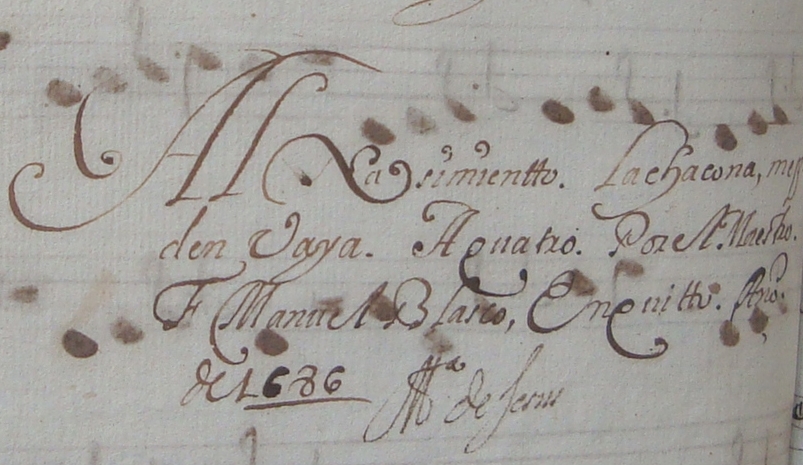 Al Nasimientto. La chacona, me
den Vaya. A quatro. Por el Maestro.
F Manuel Blasco, En quitto. Año.
de 1686 M.ª de Jesus